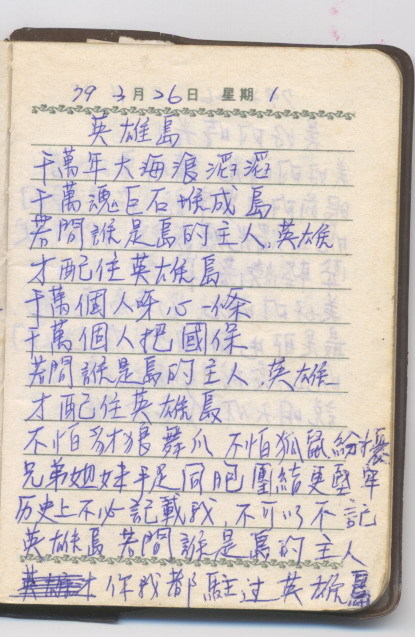 79 3月26日 星期1
英雄島
千萬年大海浪滔滔
千萬塊巨石堆成島
若問誰是島的主人,英雄
才配住英雄島
千萬個人呀心一條
千萬個人把國保
若問誰是島的主人,英雄
才配住英雄島
不怕豺狼舞爪 不怕狐鼠紛擾
兄弟姐妹手足同胞團結更堅牢
历史上不必記載我,不可以不記
英雄島 若問誰是島的主人
才你我都駐过英雄島